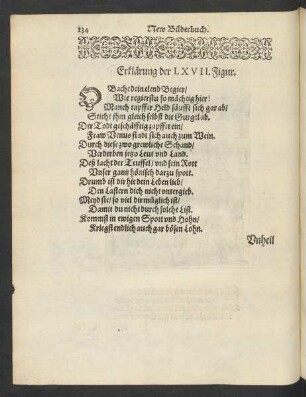 234 New Bilderbuch.
Erklärung der LXVII. Figur.
O Bacht dein elend Begier/
Wie regierstu so mächtig hier/
Manch tapffer Held säufft sich gar ab/
Sticht ihm gleich selbst die Gurgel ab.
Der Todt geschäfftig zapffet ein/
Fraw Venus findt sich auch zum Wein.
Durch diese zwo grewliche Schand/
Verderben jetzo Leut vnd Land.
Deß lacht der Teuffel/ vnd sein Rott
Vnser gantz hönisch darzu spott.
Drumb ist dir hie dein Leben lieb/
Den Lastern dich nicht vntergieb.
Meyd sie/ so viel dir müglich ist/
Damit du nicht durch solche List.
Kommst in ewigen Spott vnd Hohn/
Kriegst endlich auch gar bösen Lohn.
Vnheil